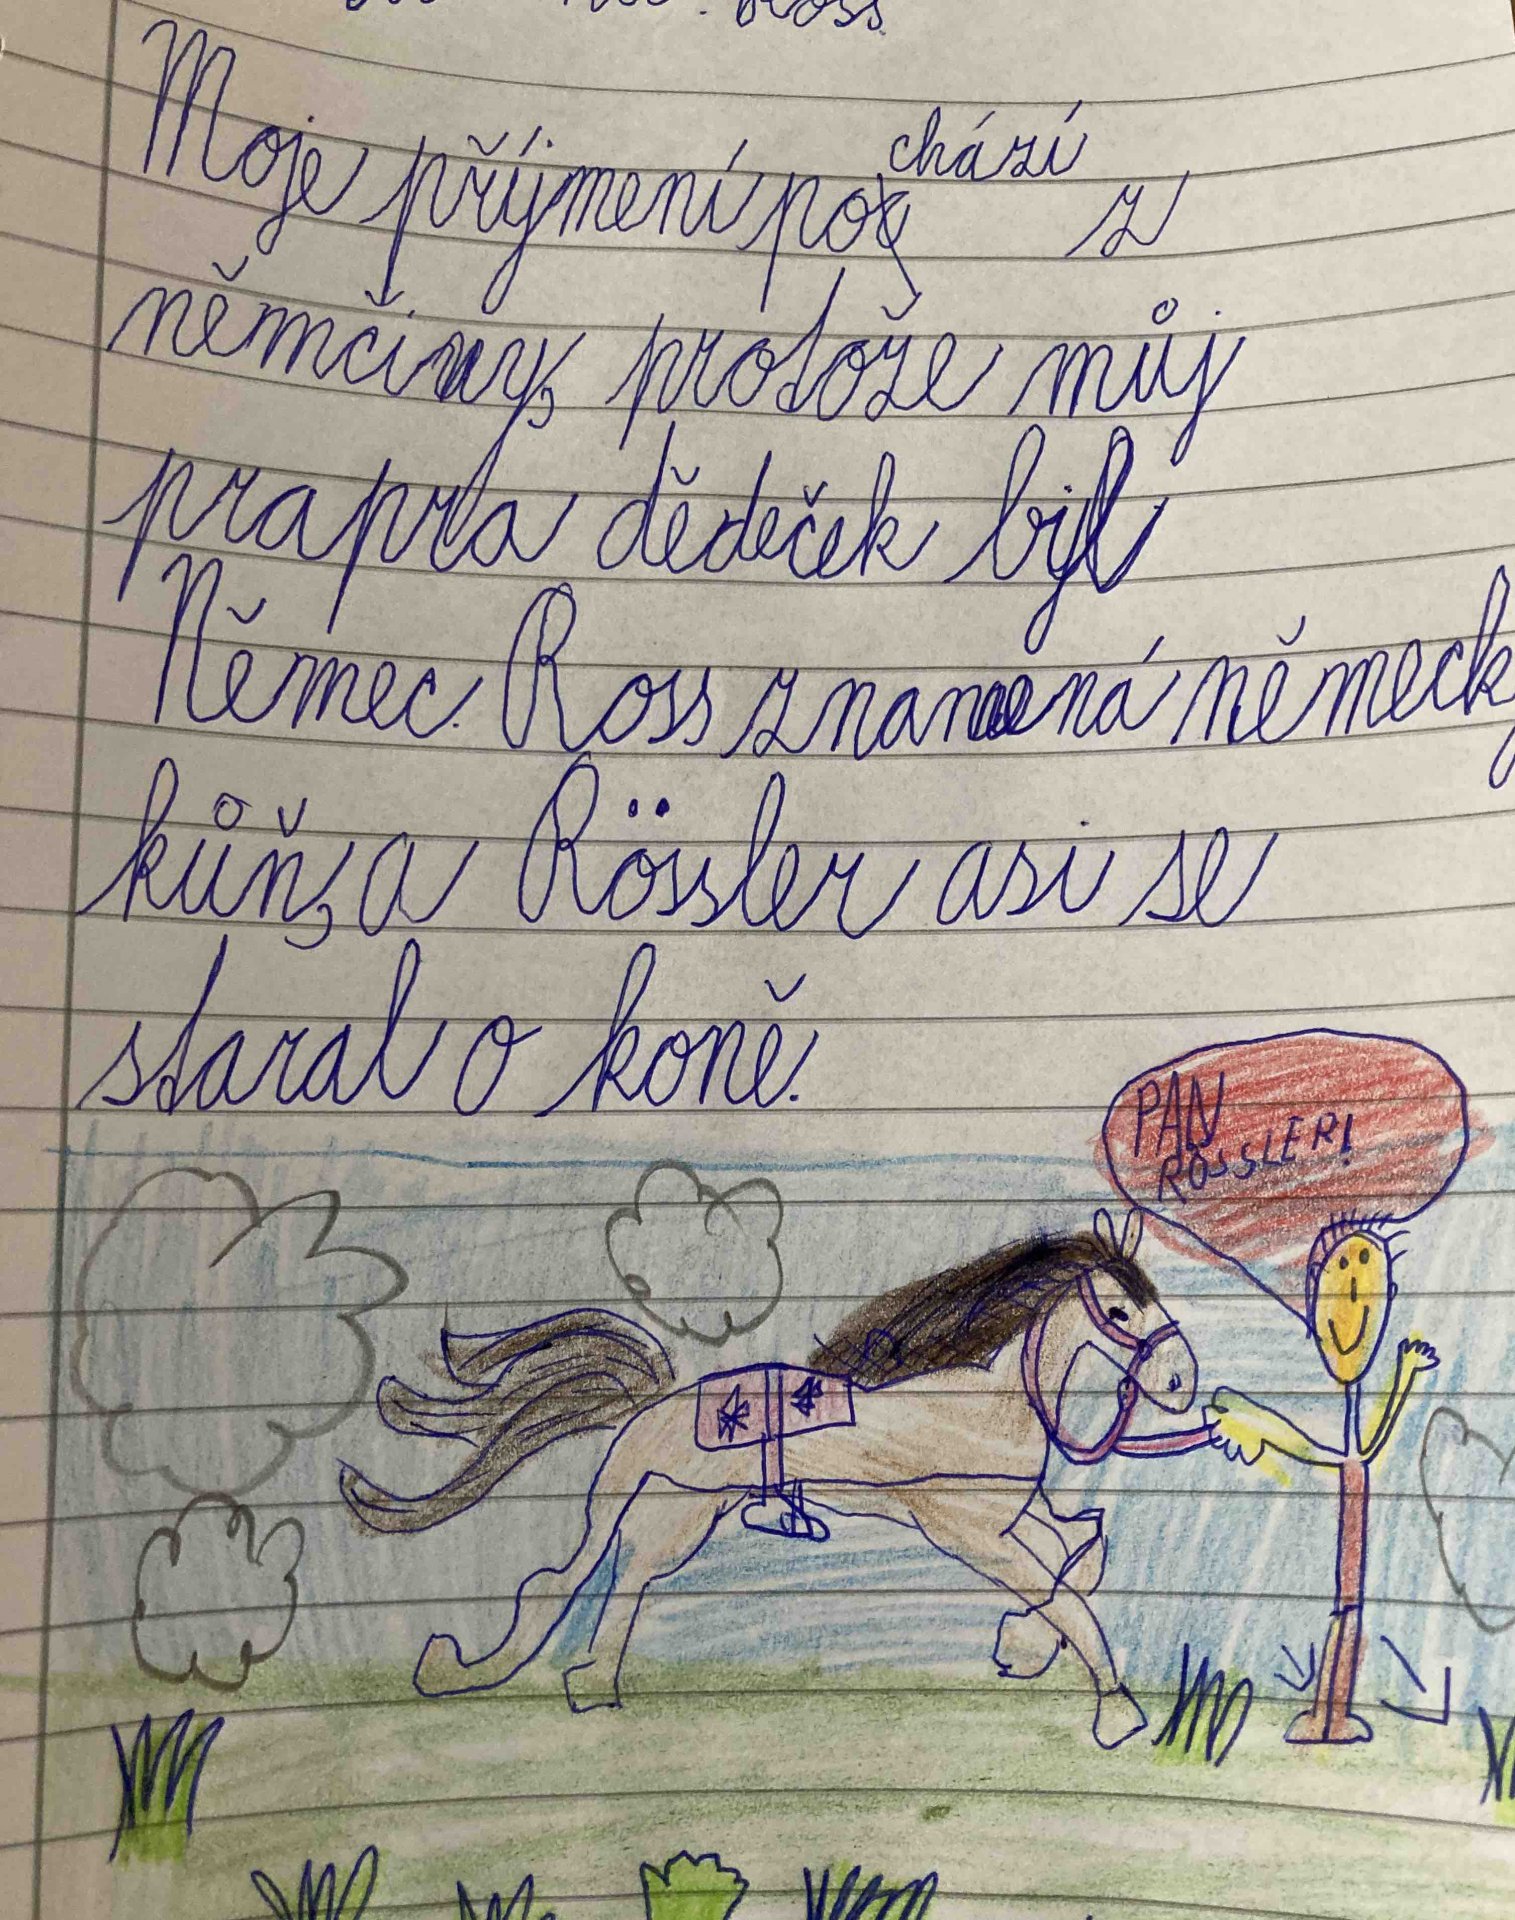 Ross
chází
Moje příjmení po z
němčiny, protože můj
prapra dědeček byl
Němec. Ross znamená německy
kůň, a Rössler asi se
staral o koně.
PAN
RÖSSLER!